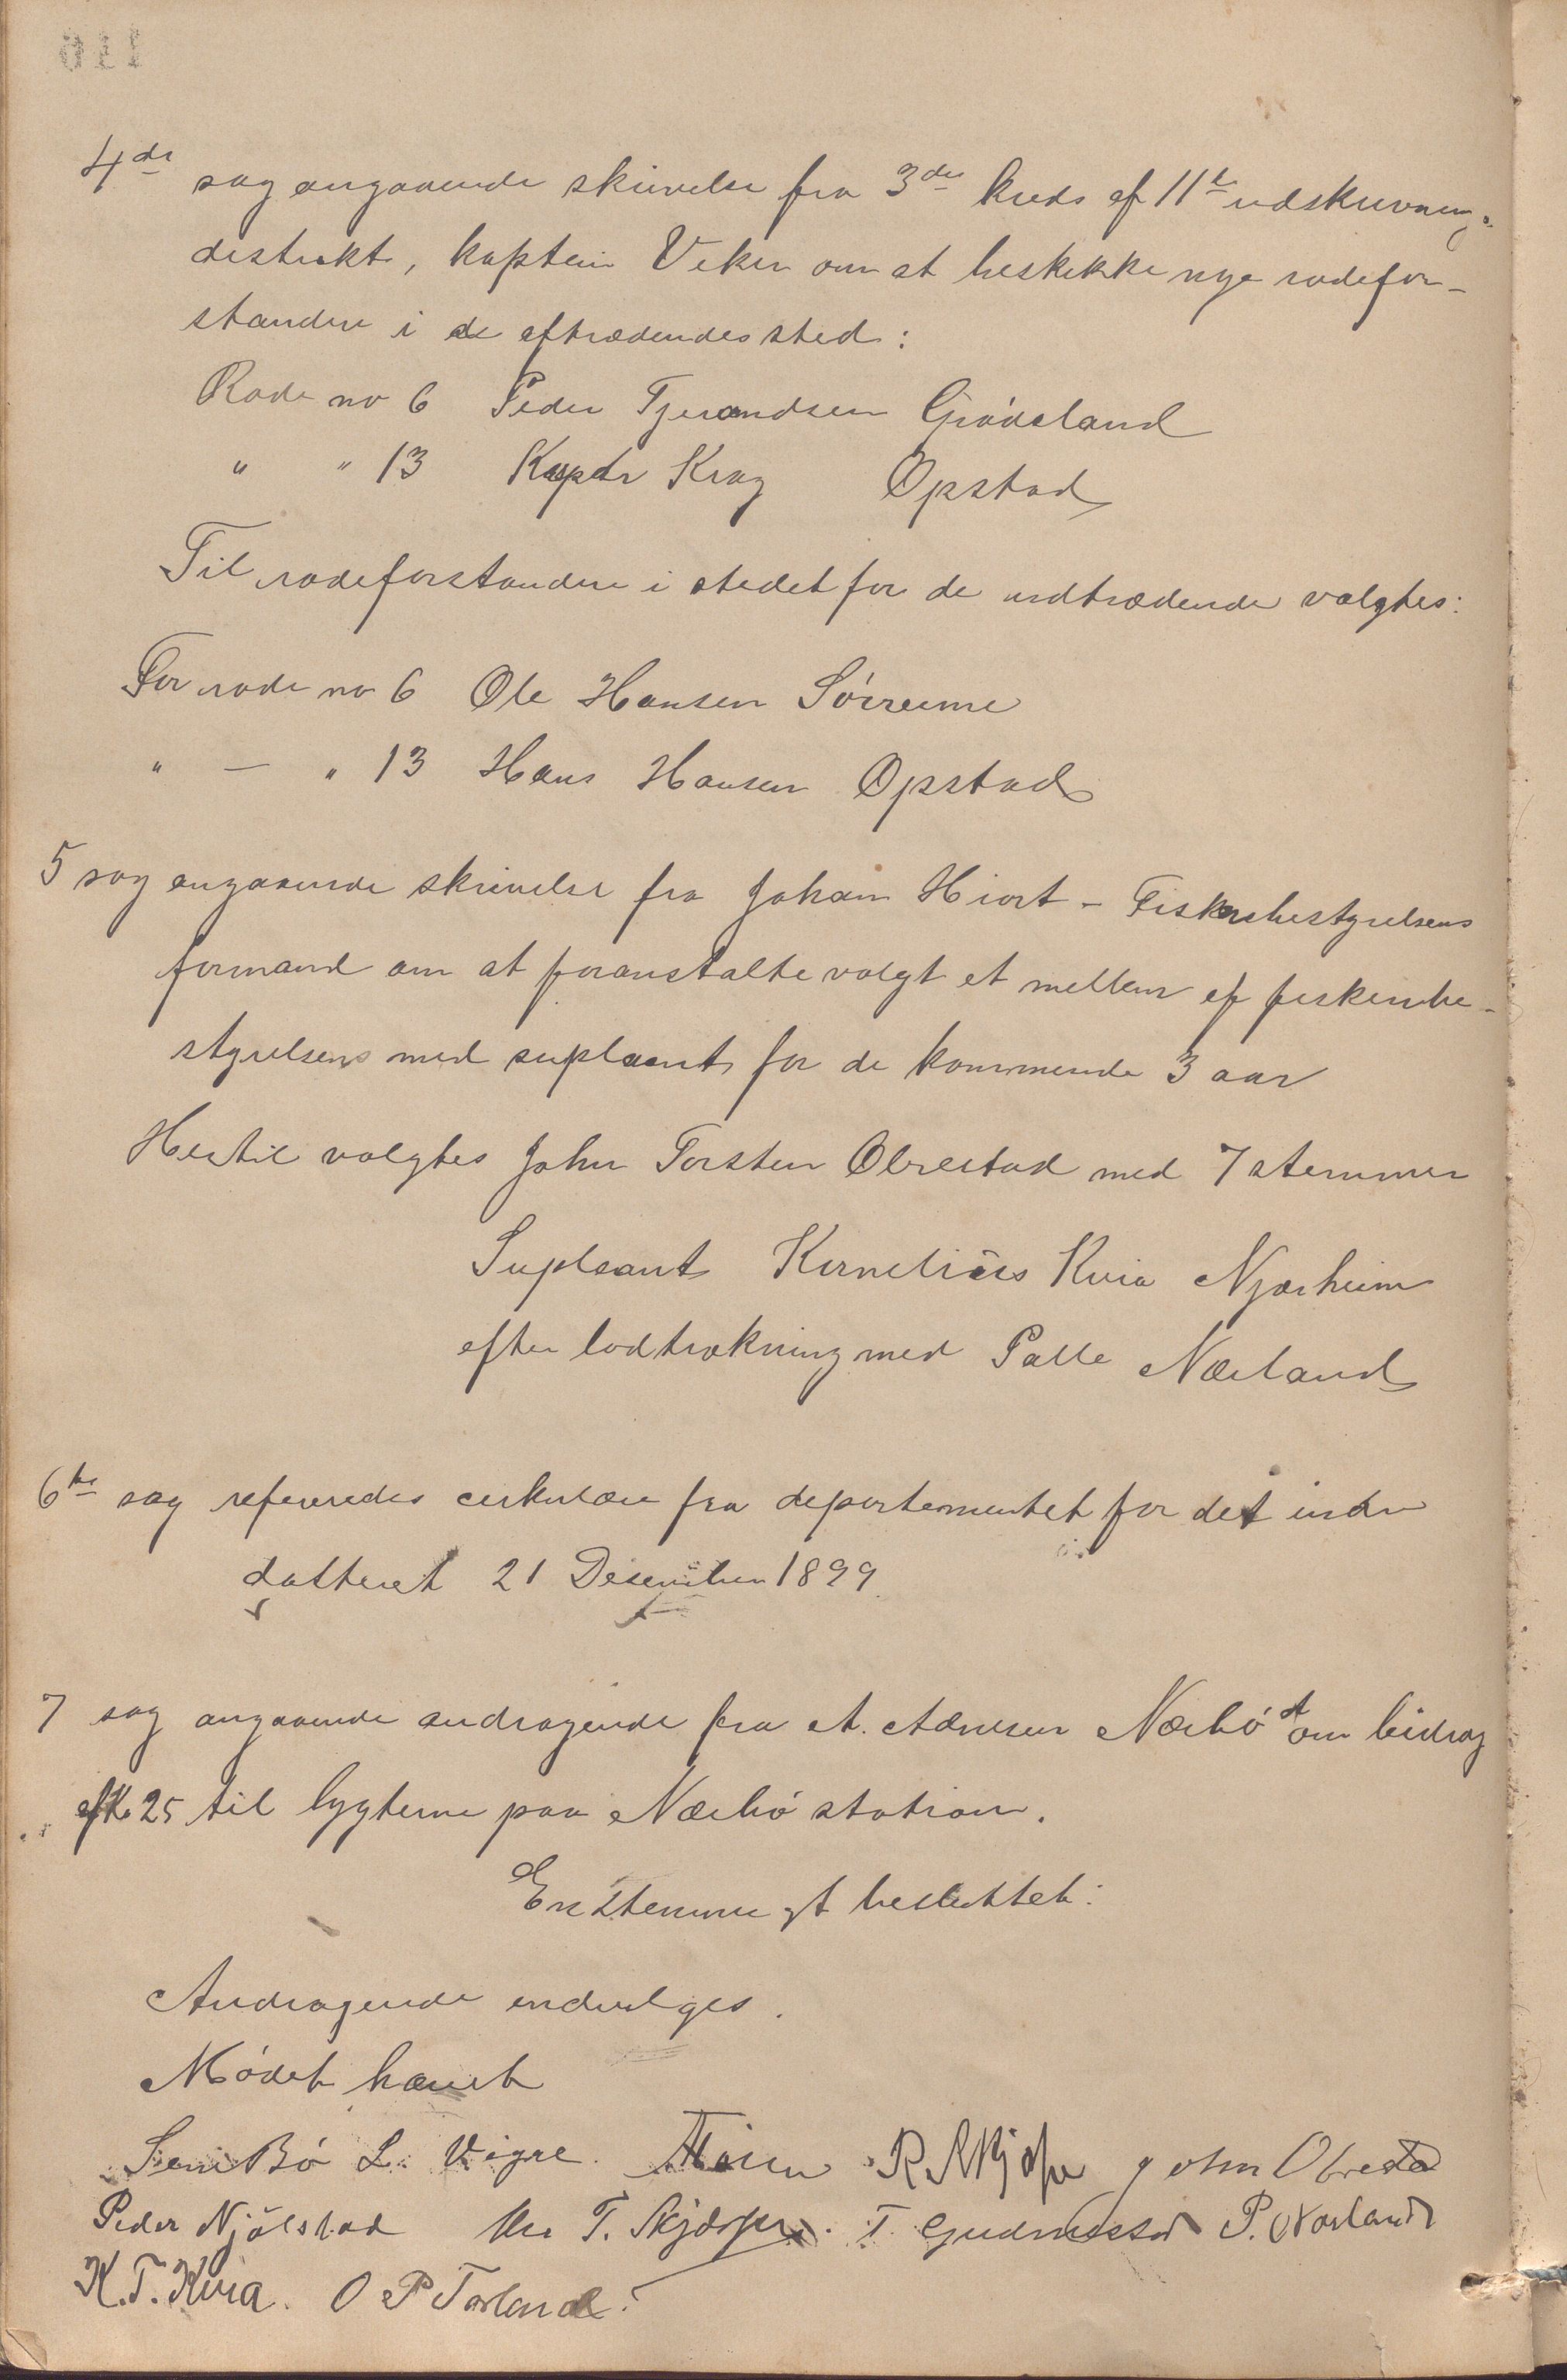 4de sag angaaende skrivelse fra 3die kreds af 11te udskrivnings
destrikt, kaptein Veken om at beskikke nye rodefor-
standere i de aftrædendes sted:
Rode no 6 Peder Tjerandsen Grødeland
" " 13 Kasper Krag Opstad
Til rodeforstandere i stedet for de udtrædende valgtes:
For rode no 6 Ole Hansen Sørreime
" — " 13 Hans Hansen Opstad
5 sag angaaende skrivelse fra Johan Hiort - Fiskeribestyrelsens
formand om at foranstalte valgt et mellem af fiskeribe-
styrelsens med supleant for de kommende 3 aar
Hertil valgtes John Torsten Obrestad med 7 stemmer
Supleant Kornelius Kvia Njærheim
efter lodtrækning med Palle Nærland
6te sag refereredes cirkulære fra departementet for det indre
datteret 21 Desember 1899.
7 sag angaaende andragende fra A. Aanesen Nærbø st om bidrag
af Kr 25 til lygterne paa Nærbø station.
Enstemmigt besluttet:
Andragende indvilges.
Mødet hævet
Sem Bø L. Vigre. R. Skjærpe John Obrestad
Peder Njølstad T. Skjærpe. T. Gudmestad P. Nærland
K. T. Kvia. O P Torland.